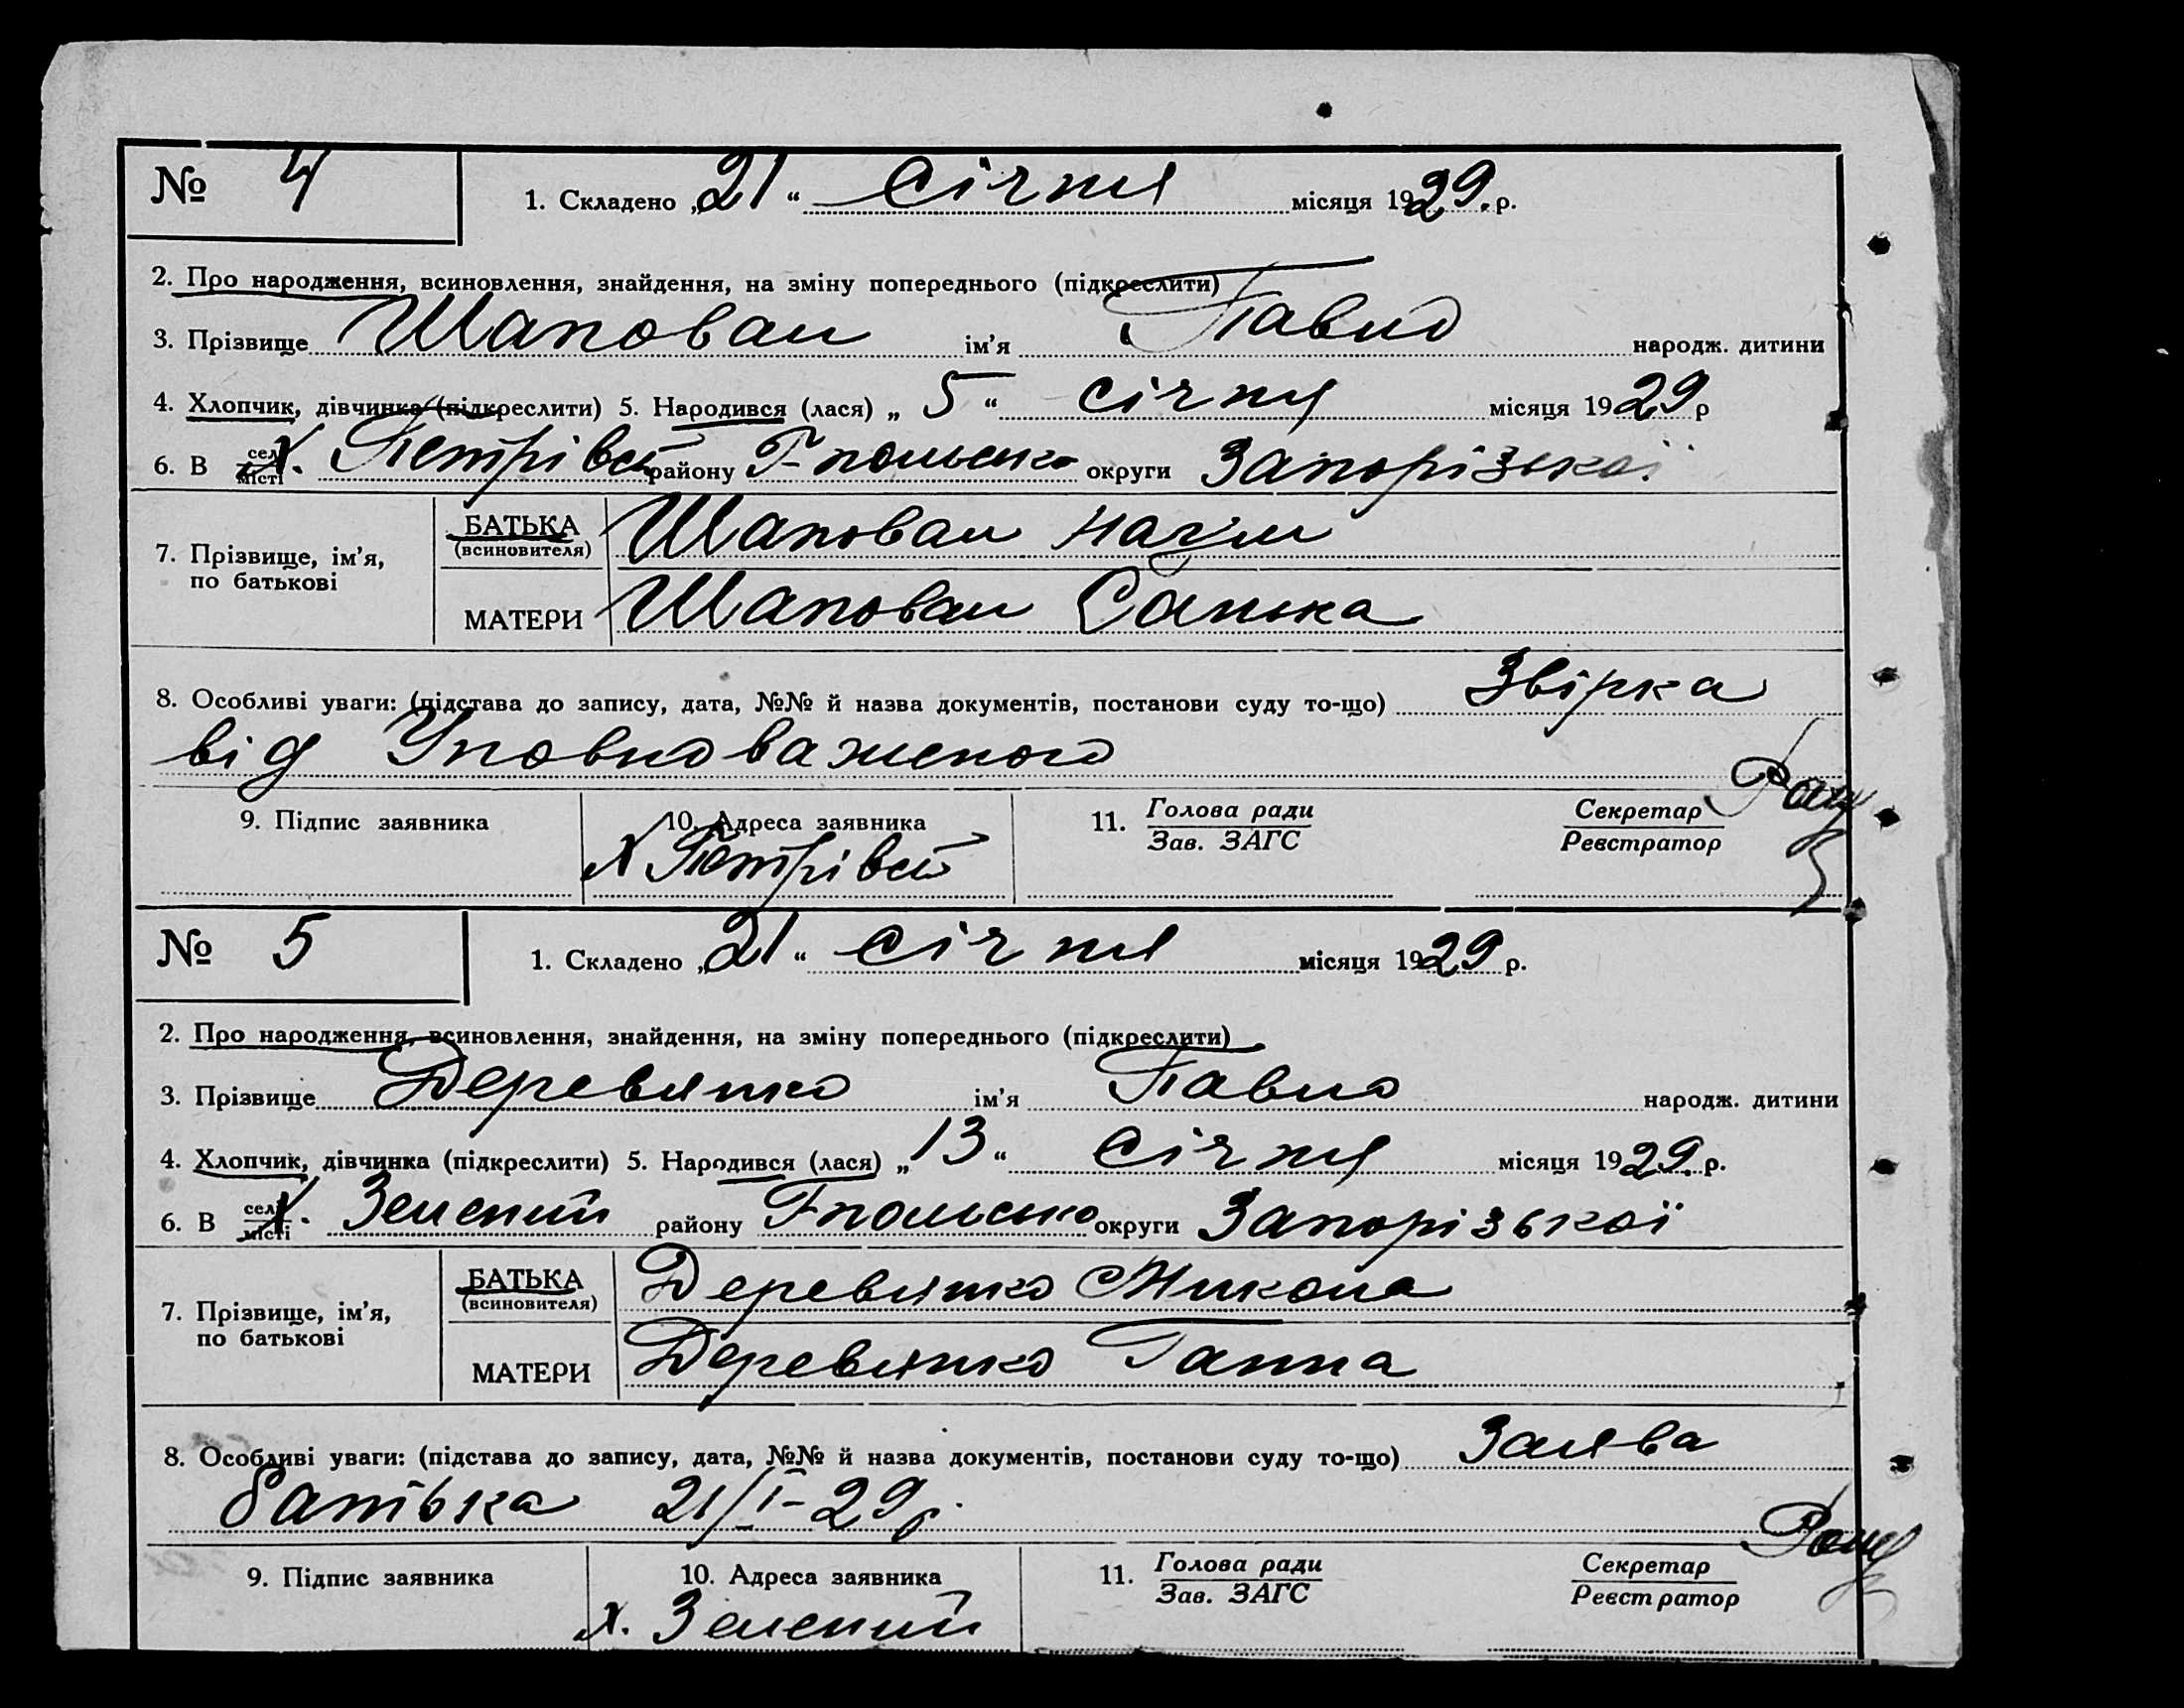 № 4 1. Складено „21“ січня місяця 1929.р.
2. Про народження, всиновлення, знайдення, на зміну попереднього (підкреслити)
3. Прізвище Шаповал ім’я Павло народж. дитини
4. Хлопчик, дівчинка (підкреслити) 5. Народився (лася) „5“ січня місяця 1929 р
6. В х. Петрівці району Г-польсько округи Запорізької
7. Прізвище, ім’я, по батькові
БАТЬКА (всиновителя) Шаповал Наум
МАТЕРИ Шаповал Санька
8. Особливі уваги: (підстава до запису, дата, №№ й назва документів, постанови суду то-що) Звірка
від Уповноваженого
9. Підпис заявника 10. Адреса заявника 11. Голова ради Секретар
Зав. ЗАГС Реєстратор
х Петрівці
№ 5 1. Складено „21“ січня місяця 1929 р.
2. Про народження, всиновлення, знайдення, на зміну попереднього (підкреслити)
3. Прізвище Деревянко ім’я Павло народж. дитини
4. Хлопчик, дівчинка (підкреслити) 5. Народився (лася) „13“ січня місяця 1929. р.
6. В х. Зелений району Г польсько округи Запорізької
7. Прізвище, ім’я, по батькові
БАТЬКА (всиновителя) Деревянко Микола
МАТЕРИ Деревянко Ганна
8. Особливі уваги: (підстава до запису, дата, №№ й назва документів, постанови суду то-що) Заява
батька 21/I-29р.
9. Підпис заявника 10. Адреса заявника 11. Голова ради Секретар
Зав. ЗАГС Реєстратор
х. Зелений